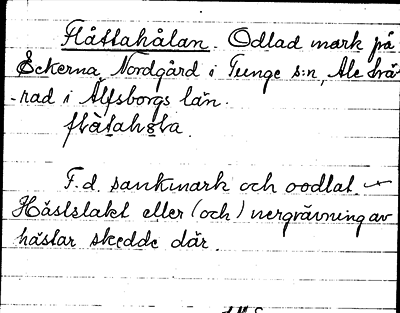 Flåttahålan. Odlad mark på
Öckerna, Nordgård i Tunge s:n, Ale hä-
-rad i Älfsborgs län.
flåtahola.
F.d. sankmark och oodlat. –
Hästslakt eller (och) nergrävning av
hästar skedde där.